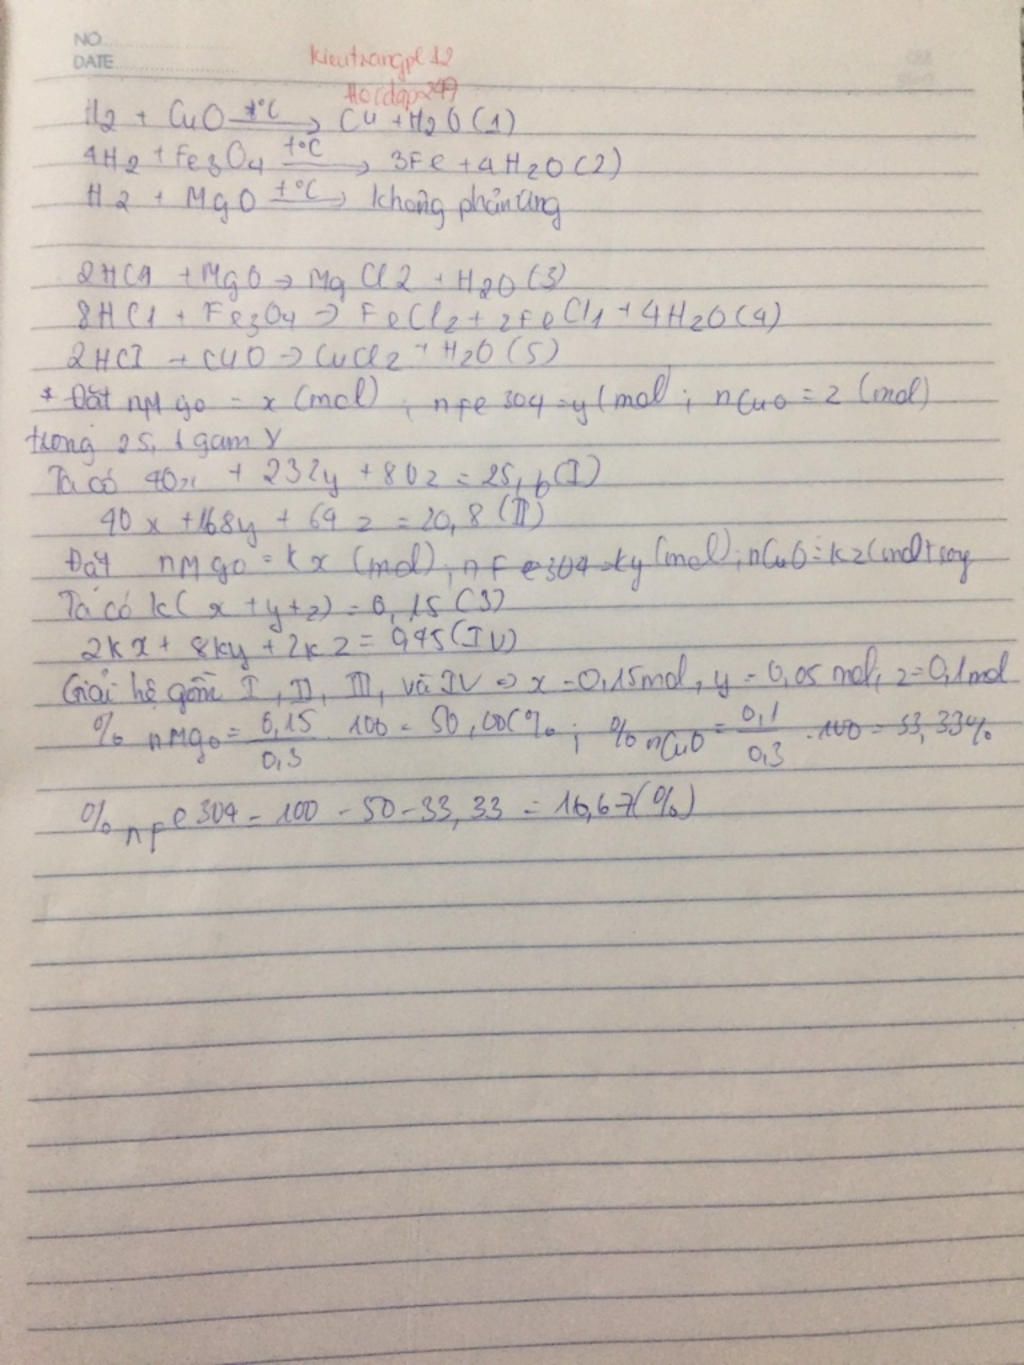 NO
DATE
kieutrangpl 12
Hoidap247
H2 + CuO t°C → Cu + H2O (1)
4H2 + Fe3O4 t°C → 3Fe + 4H2O (2)
H2 + MgO t°C → không phản ứng
2HCl + MgO → MgCl2 + H2O (3)
8HCl + Fe3O4 → FeCl2 + 2FeCl1 + 4H2O (4)
2HCl + CuO → CuCl2 + H2O (5)
* Đặt nMgO = x (mol) ; nFe3O4 = y (mol ; nCuO = z (mol)
trong 25,6 gam Y
Ta có 40x + 232y + 80z = 25,6 (I)
40x + 168y + 64z = 20,8 (II)
Đặt nMgO = kx (mol), nFe3O4 = ky (mol) ; nCuO = kz (mol)
Ta có k( x + y + z) = 0,15 (3)
2kx + 8ky + 2kz = 0,45 (IV)
Giải hệ gồm I, II, III, và IV => x = 0,15 mol, y = 0,05 mol; z = 0,1 mol
% nMgO = 0,15 / 0,3 . 100 = 50,00(% ; % nCuO = 0,1 / 0,3 . 100 = 33,33%
% nFe3O4 = 100 - 50 - 33,33 = 16,67(%)